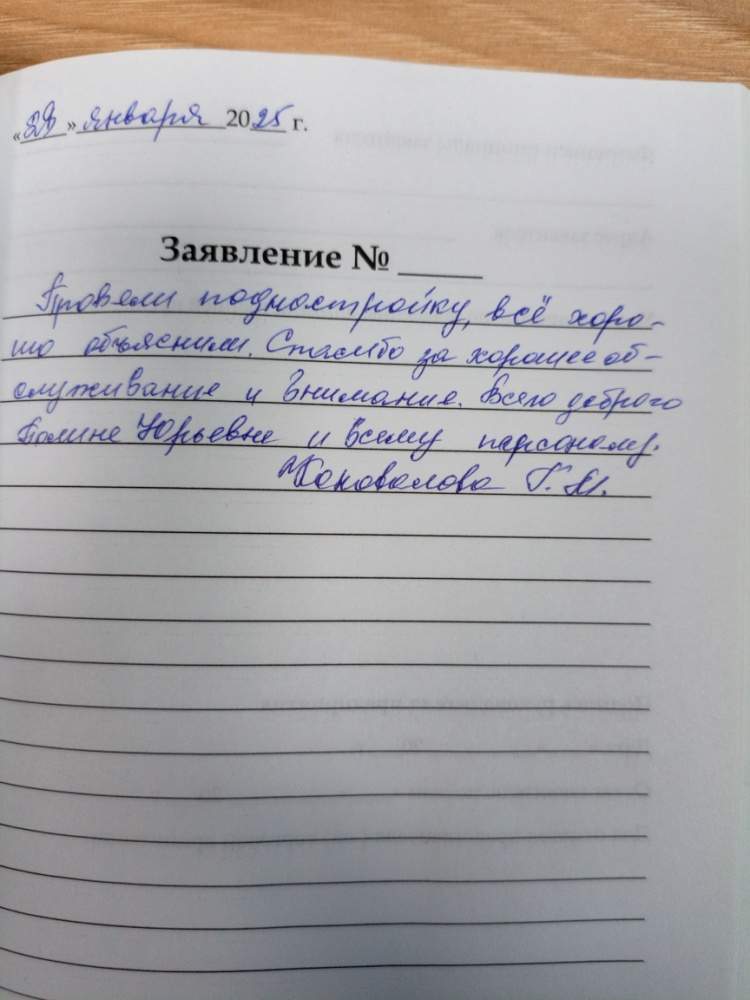 «29» января 2025 г.
Заявление № ____
Провели поднастройку, всё хоро-
шо объяснили. Спасибо за хорошее об-
служивание и внимание. Всего доброго
Полине Юрьевне и всему персоналу.
Коновалова Г. М.